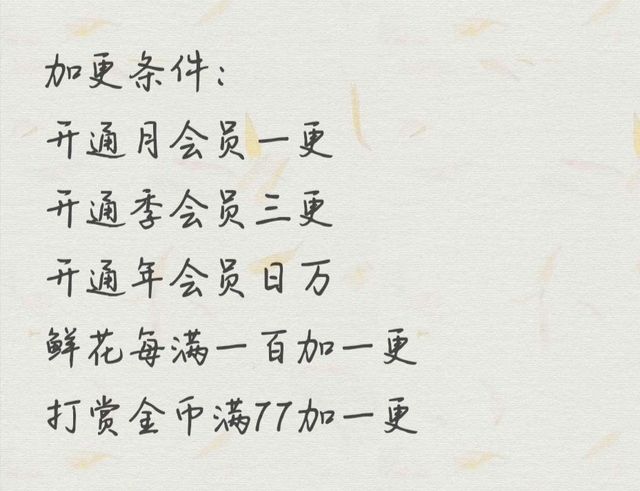 加更条件：
开通月会员一更
开通季会员三更
开通年会员日万
鲜花每满一百加一更
打赏金币满77加一更